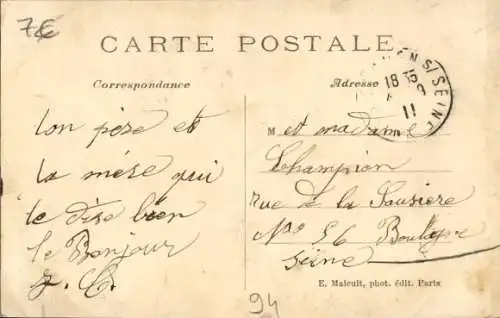 7€
CARTE POSTALE
Correspondance
Adresse
EN S/SEINE
18 35
9
11
ton père et
la mère qui
te dise bien
le Bonjour
J. C.
M et madame
Champion
Rue de la Saussière
No 56 Boulogne
Seine
94
E. Malcuit, phot. édit. Paris